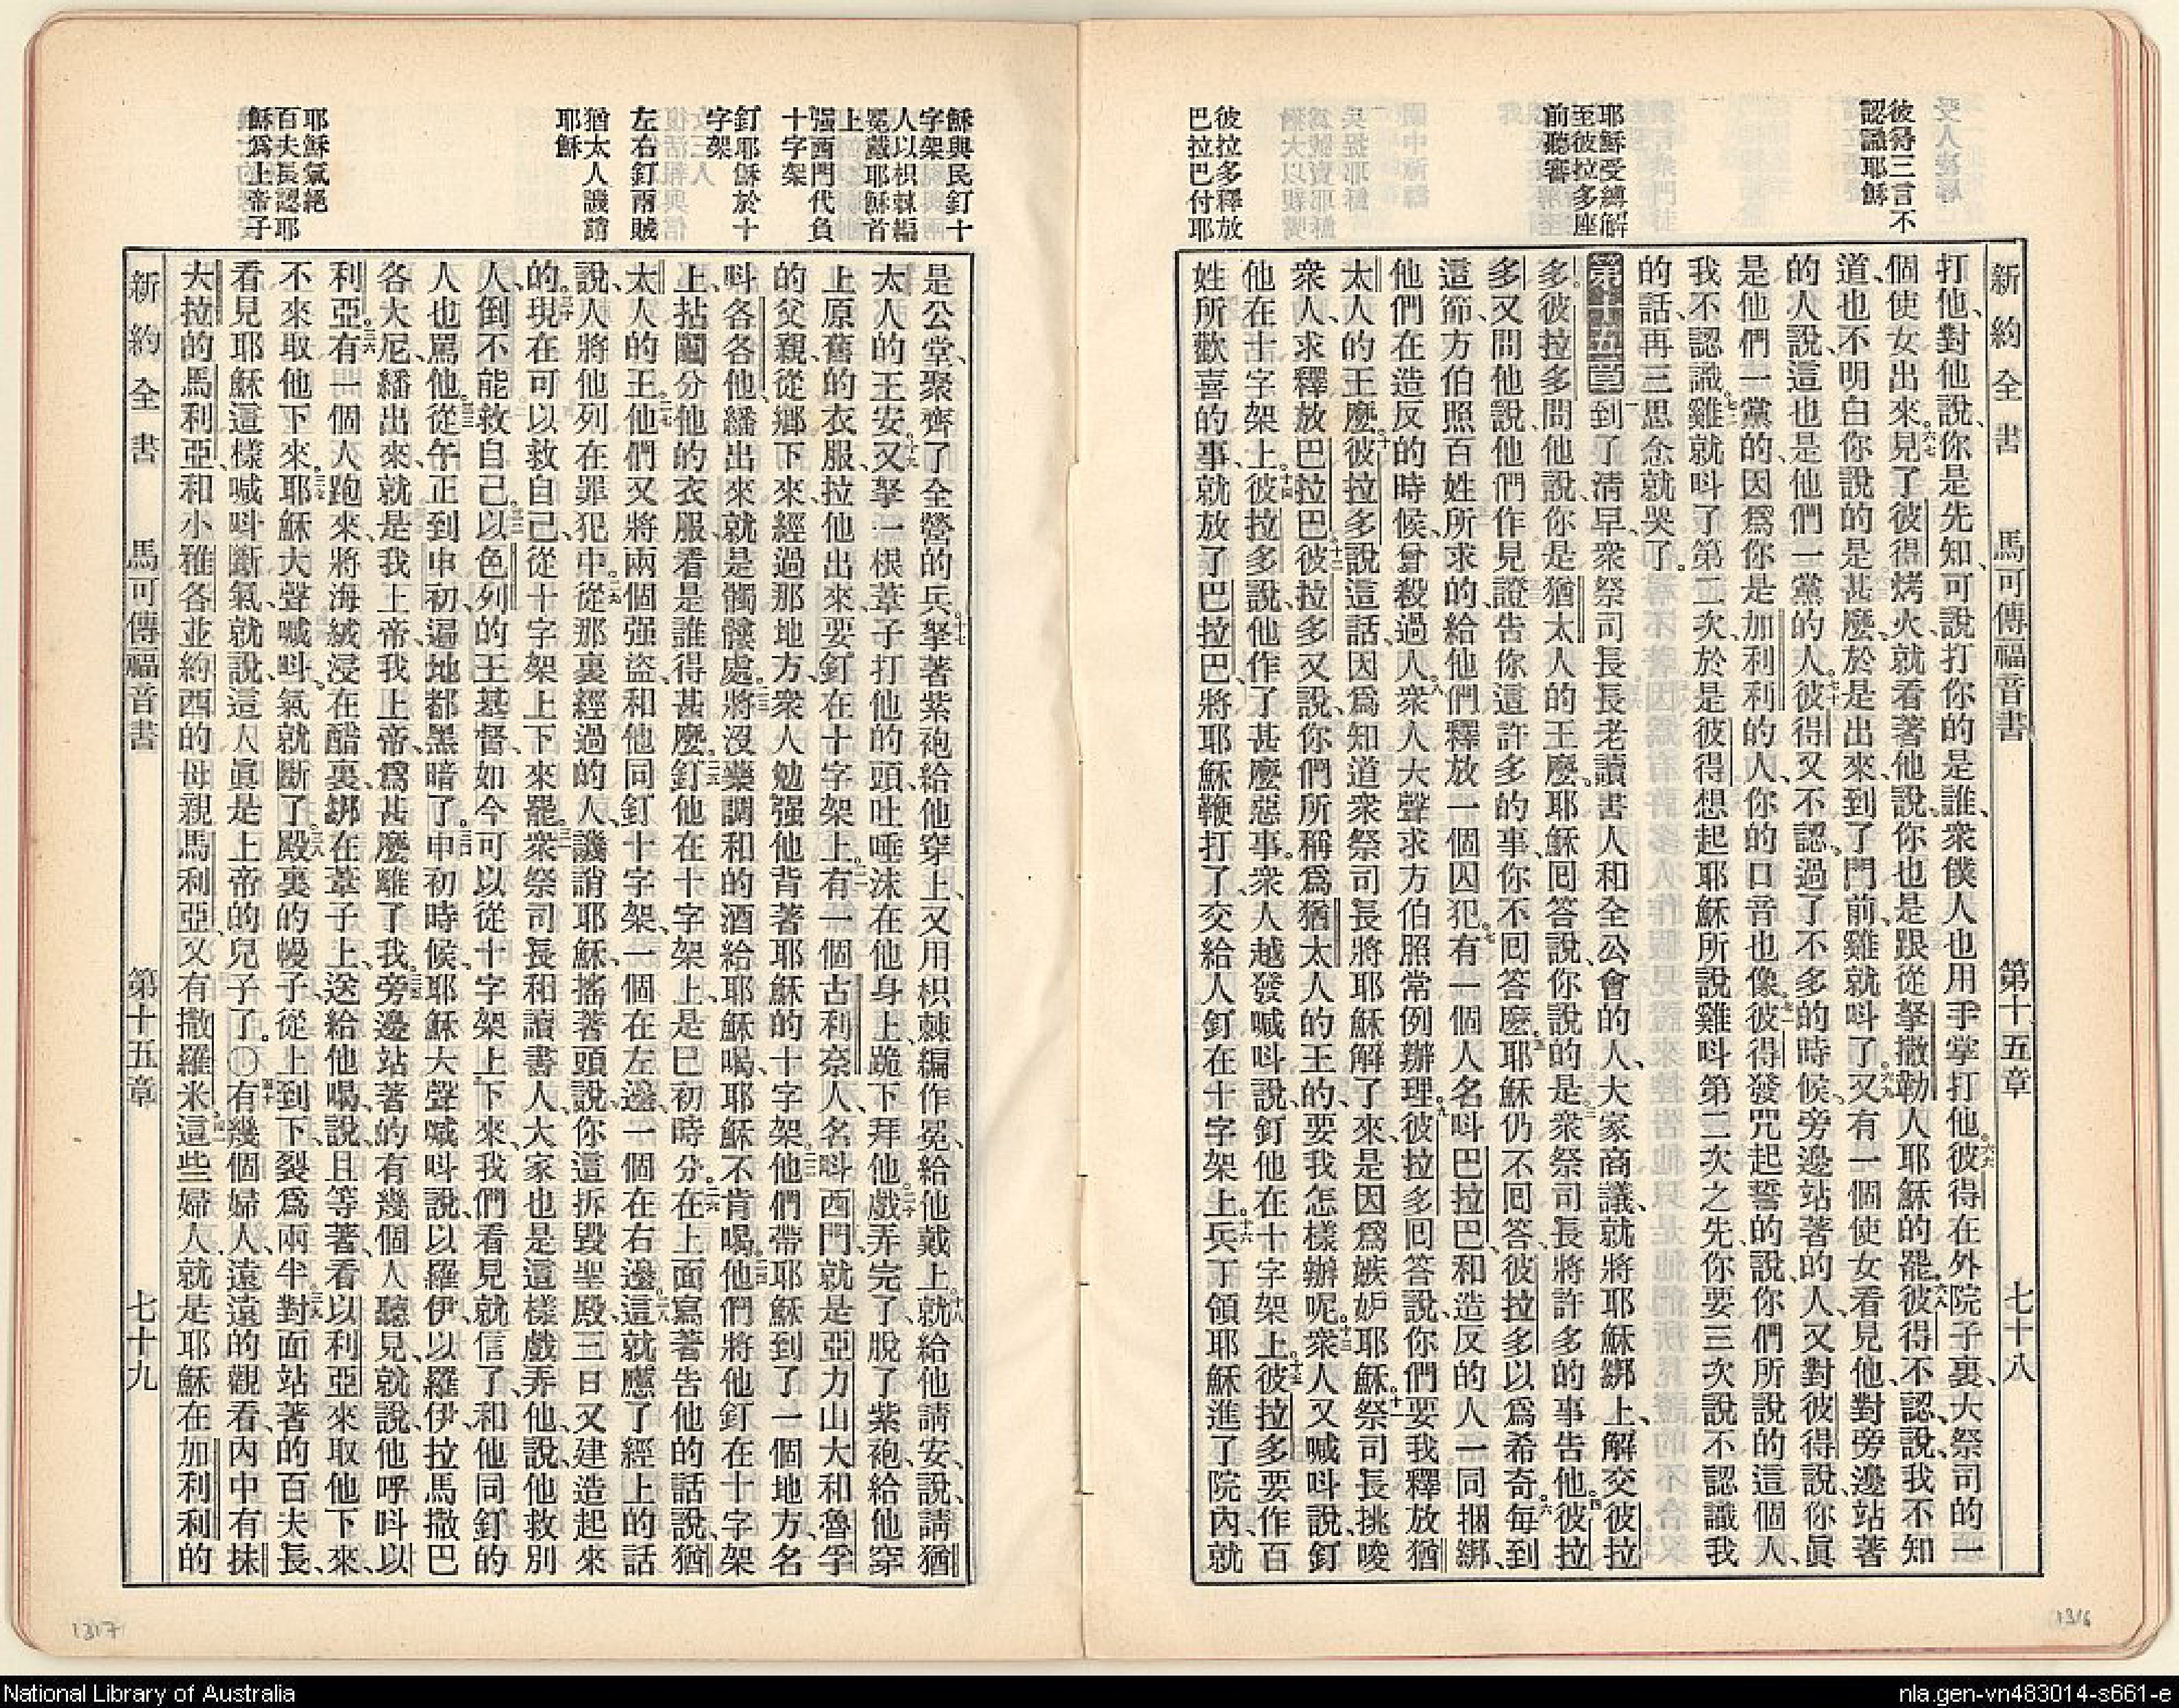 彼得三言不
認識耶穌
耶穌受縛解
至彼拉多座
前聽審
彼拉多釋放
巴拉巴付耶
新約全書 馬可傳福音書 第十五章 七十八
打他、對他說、你是先知、可說打你的是誰、衆僕人也用手掌打他。六六彼得在外院子裏、大祭司的一
個使女出來。六七見了彼得烤火、就看著他說、你也是跟從拏撒勒人耶穌的罷。六八彼得不認、說、我不知
道、也不明白你說的是甚麼、於是出來、到了門前、雞就呌了。六九又有一個使女看見他、對旁邊站著
的人說、這也是他們一黨的人。七十彼得又不認。過了不多的時候、旁邊站著的人、又對彼得說、你眞
是他們一黨的、因爲你是加利利的人、你的口音也像。七一彼得發咒起誓的說、你們所說的這個人、
我不認識。七二雞就呌了第二次、於是彼得想起耶穌所說雞呌第二次之先、你要三次說不認識我
的話、再三思念就哭了。
第十五章一到了清早、衆祭司長長老讀書人和全公會的人、大家商議、就將耶穌綁上、解交彼拉
多。二彼拉多問他說、你是猶太人的王麼。耶穌囘答說、你說的是。三衆祭司長將許多的事告他。四彼拉
多又問他說、他們作見證告你這許多的事、你不囘答麼。五耶穌仍不囘答、彼拉多以爲希奇。六每到
這節、方伯照百姓所求的、給他們釋放一個囚犯。七有一個人名呌巴拉巴、和造反的人一同捆綁、
他們在造反的時候、曾殺過人。八衆人大聲求方伯照常例辦理。九彼拉多囘答說、你們要我釋放猶
太人的王麼。十彼拉多說這話、因爲知道衆祭司長將耶穌解了來、是因爲嫉妒耶穌。十一祭司長挑唆
衆人求釋放巴拉巴。十二彼拉多又說、你們所稱爲猶太人的王的、要我怎樣辦呢。十三衆人又喊呌說、釘
他在十字架上。十四彼拉多說、他作了甚麼惡事。衆人越發喊呌說、釘他在十字架上。十五彼拉多要作百
姓所歡喜的事、就放了巴拉巴、將耶穌鞭打了、交給人釘在十字架上。十六兵丁領耶穌進了院內、就
1316
穌與民釘十
字架
人以枳棘編
冕戴耶穌首
上
强西門代負
十字架
釘耶穌於十
字架
左右釘兩賊
猶太人譏誚
耶穌
耶穌氣絕
百夫長認耶
穌爲上帝子
是公堂、聚齊了全營的兵。十七拏著紫袍給他穿上、又用枳棘編作冕、給他戴上。十八就給他請安、說、請猶
太人的王安。十九又拏一根葦子打他的頭、吐唾沫在他身上、跪下拜他。二十戲弄完了、脫了紫袍、給他穿
上原舊的衣服、拉他出來、要釘在十字架上。二一有一個古利奈人、名呌西門、就是亞力山大和魯孚
的父親、從鄉下來、經過那地方、衆人勉强他背著耶穌的十字架。二二他們帶耶穌到了一個地方、名
呌各各他、繙出來就是髑髏處。二三將沒藥調和的酒給耶穌喝、耶穌不肯喝。二四他們將他釘在十字架
上、拈鬮分他的衣服、看是誰得甚麼。二五釘他在十字架上、是巳初時分。二六在上面寫著告他的話說、猶
太人的王。二七他們又將兩個强盜、和他同釘十字架、一個在左邊、一個在右邊。二八這就應了經上的話
說、人將他列在罪犯中。二九從那裏經過的人、譏誚耶穌、搖著頭說、你這拆毀聖殿、三日又建造起來
的。三十現在可以救自己、從十字架上下來罷。三一衆祭司長和讀書人、大家也是這樣戲弄他、說、他救別
人、倒不能救自己。三二以色列的王基督、如今可以從十字架上下來、我們看見就信了、和他同釘的
人也罵他。三三從午正到申初、遍地都黑暗了。三四申初時候、耶穌大聲喊呌說、以羅伊、以羅伊、拉馬撒巴
各大尼、繙出來、就是我上帝、我上帝、爲甚麼離了我。三五旁邊站著的有幾個人聽見、就說、他呼呌以
利亞。三六有一個人跑來、將海絨浸在醋裏、綁在葦子上、送給他喝、說、且等著、看以利亞來取他下來、
不來取他下來。三七耶穌大聲喊呌。氣就斷了。三八殿裏的幔子、從上到下、裂爲兩半。三九對面站著的百夫長、
看見耶穌這樣喊呌斷氣、就說、這人眞是上帝的兒子了。〇四十有幾個婦人、遠遠的觀看、內中有抹
大拉的馬利亞、和小雅各並約西的母親馬利亞、又有撒羅米。四一這些婦人、就是耶穌在加利利的
新約全書 馬可傳福音書 第十五章 七十九
1317
National Library of Australia
nla.gen-vn483014-s661-e